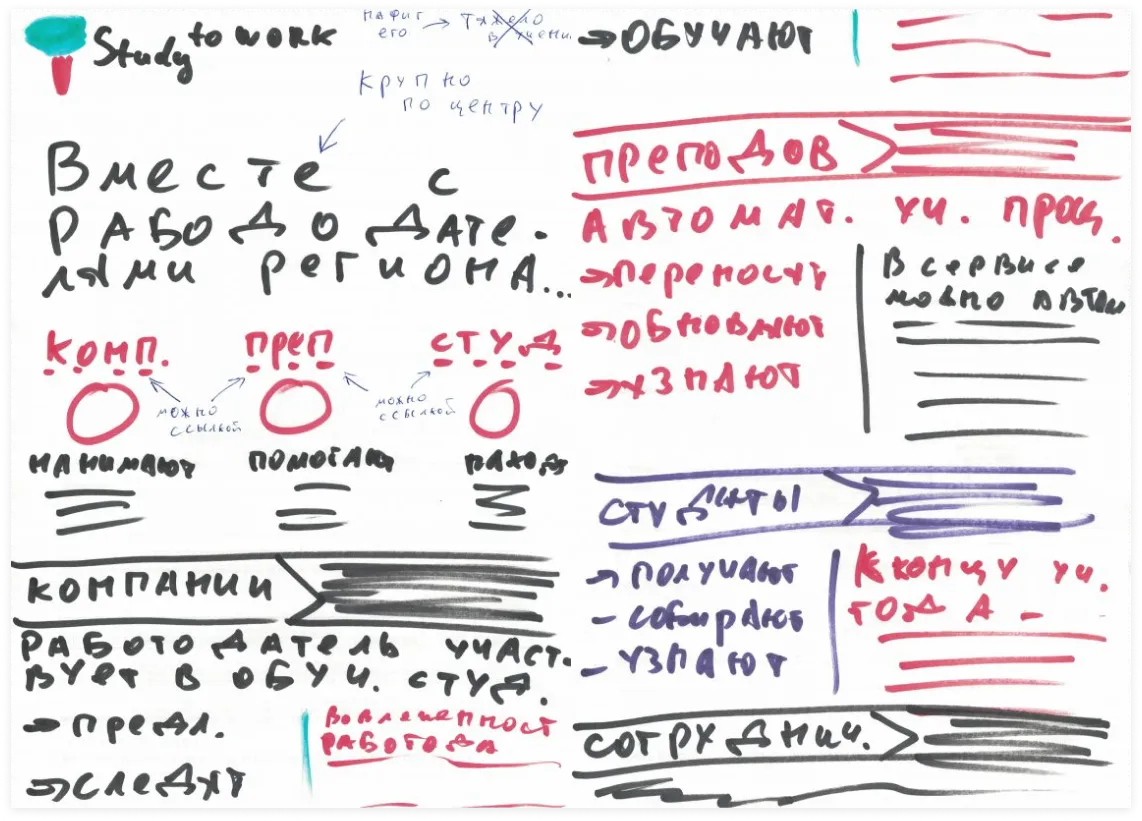 Study to work
нафиг
его
Тяжело
в учении
Крупно
по центру
Вместе с
работодате-
лями региона...
комп.
преп
студ
можно
ссылкой
можно
ссылкой
нанимают
помогают
компании
работодатель участ-
вует в обуч. студ.
предл.
следят
Вовлеченност
работода
обучают
преподов
автомат. уч. проц.
переносят
обновляют
узнают
В сервисе
можно автом
студенты
получают
собирают
узнают
К концу уч.
года
сотруднич.